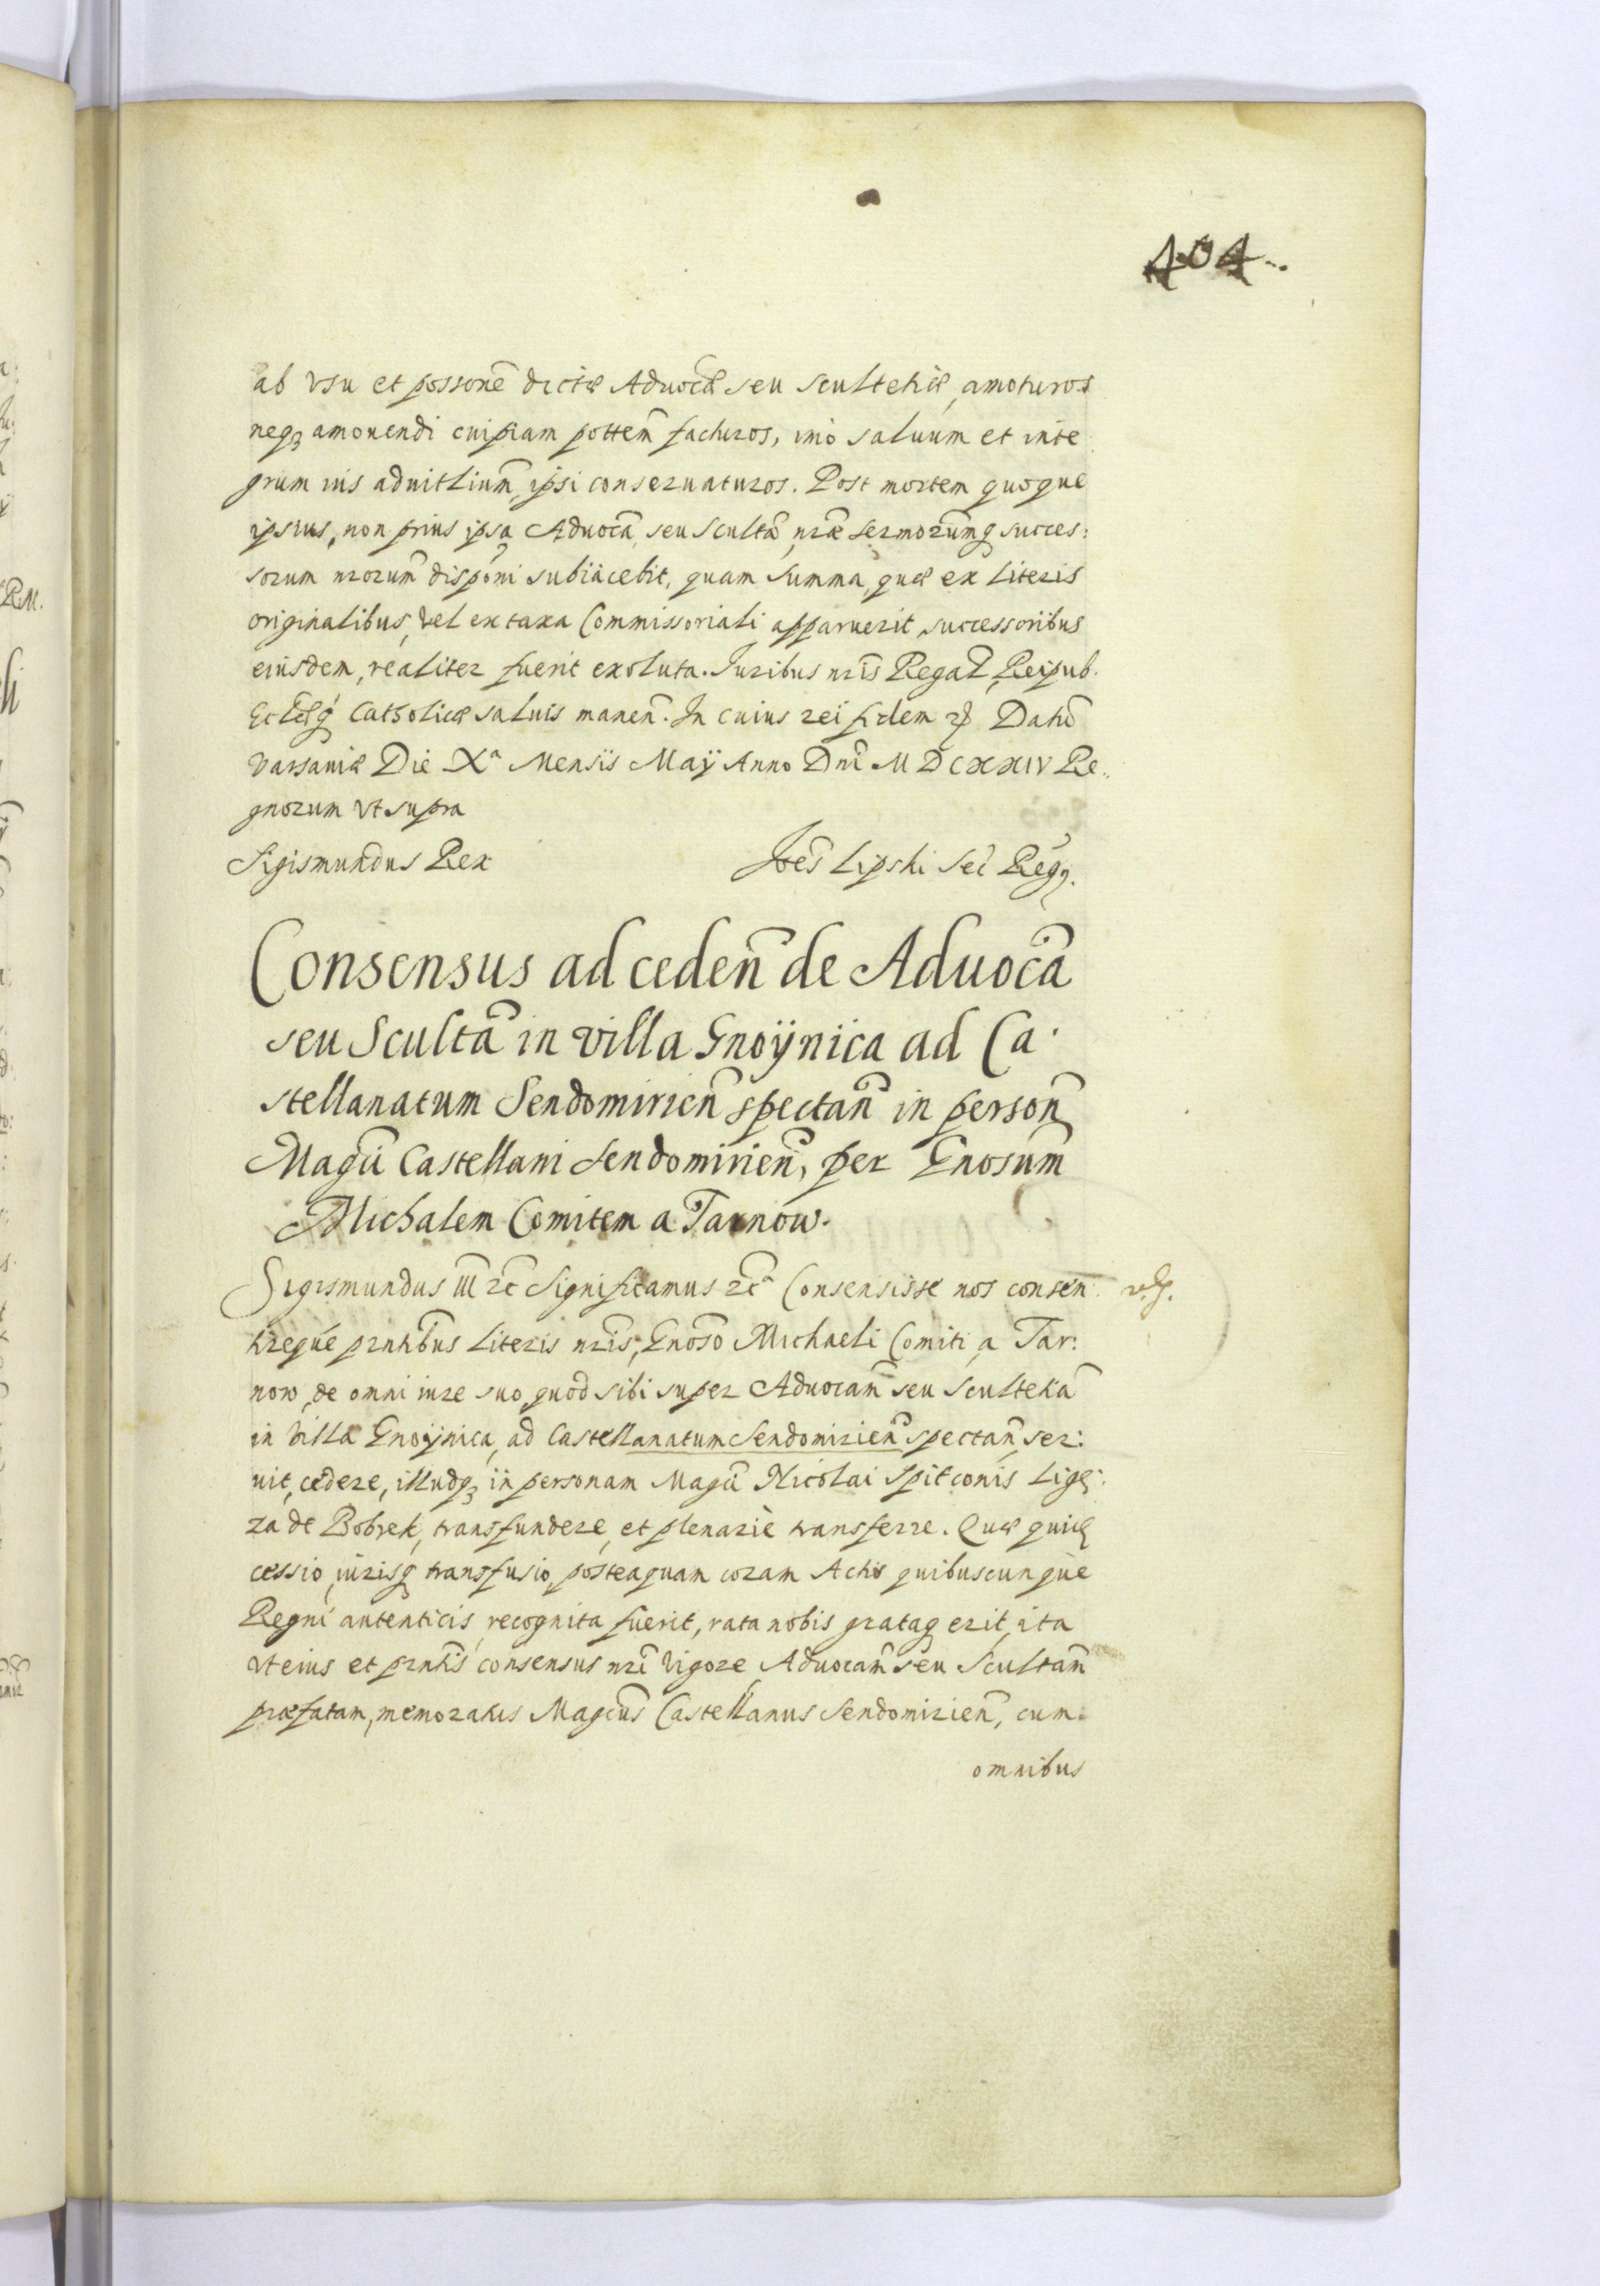 404.
ab vsu et possonē dictæ Aduocæ seu scultetiæ, amoturos
neq₃ amouendi cuipiam pottem̃ facturos, imò saluum et inte
grum ius aduitlium̃ ipsi conseruaturos. Post mortem quoque
ipsius, non prius ipsa Aduocã seu Scultã nr̃æ Sermorum̃q succes:
sorum nrorum̃ disponi subiacebit, quam Summa, quæ ex Literis
originalibus, vel ex taxa Commissoriali apparuerit, successoribus
eiusdem, realiter fuerit exoluta. Juribus nr̃is Regal̃, Reipub.
Eccl̃æq Catholicæ saluis manen̄. In cuius rei fidem ꝛꝭ Datũ
Varsauiæ Die Xª Mensis Maÿ Anno Dnĩ MDCXXIV Re..
gnorum vt supra
Sigismundus Rex Joẽs Lipski Sec̃ Reg.
Consensus ad ceden̄ de Aduocã
seu Scultã in villa Gnoÿnica ad Ca:
stellanatum Sendomirien̄ spectan̄ in person̄
Magci Castellani Sendomirien̄, per Gnosum̃
Michalem Comitem a Tarnow.
Sigismundus III ꝛc̃ Significamus ꝛc̃ª Consensisse nos consen:
tireque pr̃ntibus Literis nr̃is, Gnoso Michaeli Comiti a Tar:
now, de omni iure suo, quod sibi super Aduocam̃ seu Scultetiã
in Villa Gnoÿnica, ad Castellanatum Sendomirien̄ spectan̄, ser:
uit, cedere, illudq₃ in personam Magci Nicolai Spitconis Lige:
za de Bobrek, transfundere, et plenariè transferre. Quæ quid̃
cessio, iurisq transfusio, posteaquam coram Actis quibuscunque
Regni autenticis, recognita fuerit, rata nobis grataq erit, ita
vt eius et pr̃ntis consensus nr̃i Vigore Aduocam̃ seu Scultam̃
præfatam, memoratus Magcus Castellanus Sendomirien̄, cum
omnibus